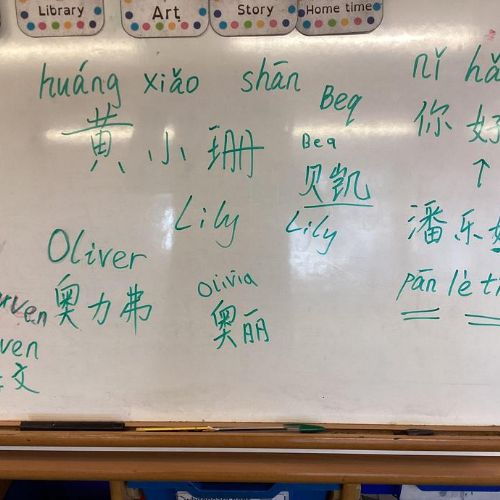 Library Art Story Home time
huáng xiǎo shān
Beq
nǐ hǎ
黄小珊
Bea
贝凯
你好
↑
Lily
Lily
潘乐
Oliver
Olivia
pān lè t
ven
奥力弗
奥丽
ven
文